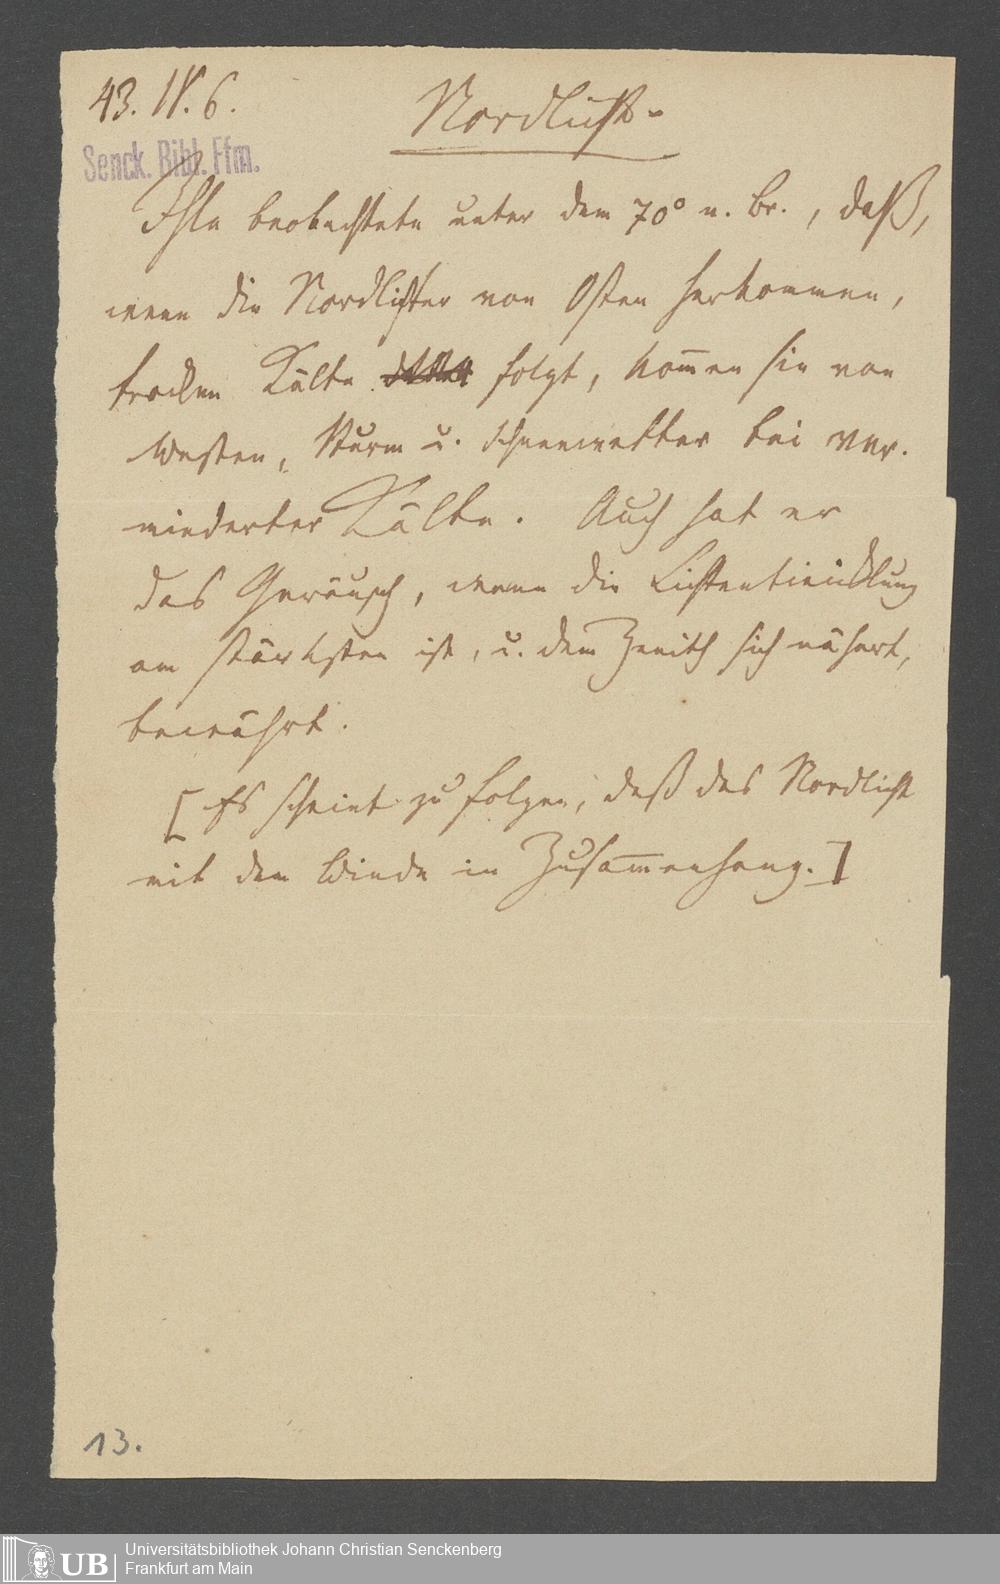 43. IV. 6.
Nordlicht.
Senck. Bibl. Ffm.
Ihle beobachtete unter dem 70° n. Br., daß,
wenn die Nordlichter von Osten herkommen,
trockne Kälte folgt, kom̄en sie von
Westen, Sturm u. Schneewetter bei ver-
minderter Kälte. Auch hat er
das Geräusch, wenn die Lichtentwicklung
am stärksten ist, u. dem Zenith sich nähert,
bewährt.
[Es scheint zu folgen, daß das Nordlicht
mit dem Winde in Zusam̄enhang.]
13.
UB
Universitätsbibliothek Johann Christian Senckenberg
Frankfurt am Main